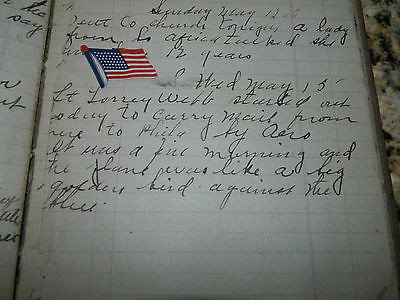 Sunday May 12
Went to church tonight a lady
from So Africa talked she
12 years
Wed May 15
Lt Torrey Webb started out
today to carry mail from
here to Phila by Aero
It was a fine morning and
the plane was like a big
golden bird against the
blue.